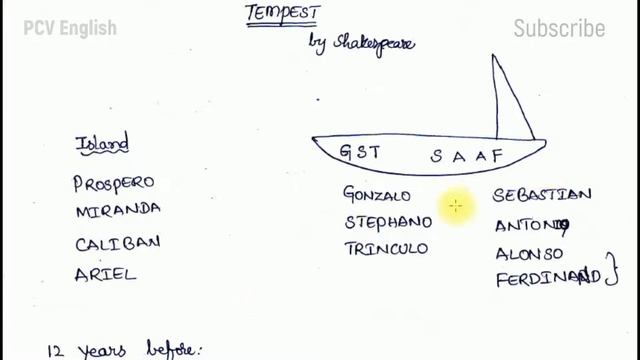 PCV English
TEMPEST
Subscribe
by Shakespeare
GST SAAF
Island
PROSPERO
MIRANDA
CALIBAN
ARIEL
GONZALO
STEPHANO
TRINCULO
SEBASTIAN
ANTONIO
ALONSO
FERDINAND
12 years before: